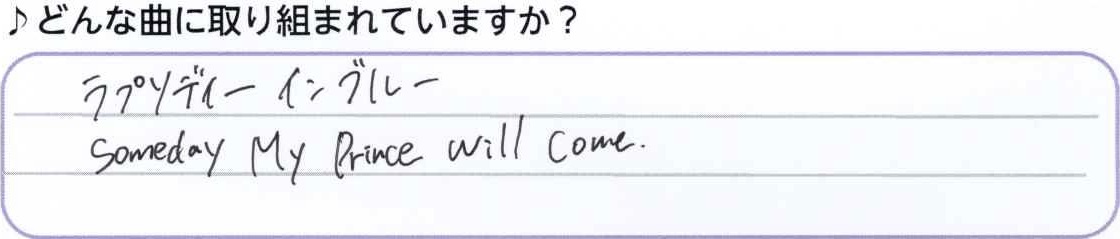 ♪どんな曲に取り組まれていますか？
ラプソディー イン ブルー
Someday My Prince Will Come.